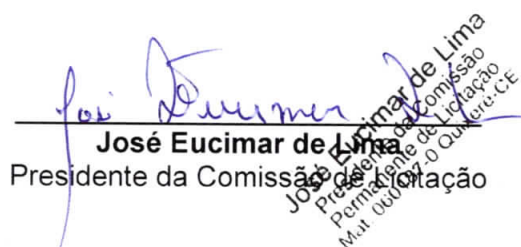 José Eucimar de Lima
Presidente da Comissão de Licitação
José Eucimar de Lima
Presidente da Comissão
Permanente de Licitação
Mat. Quixeré-CE